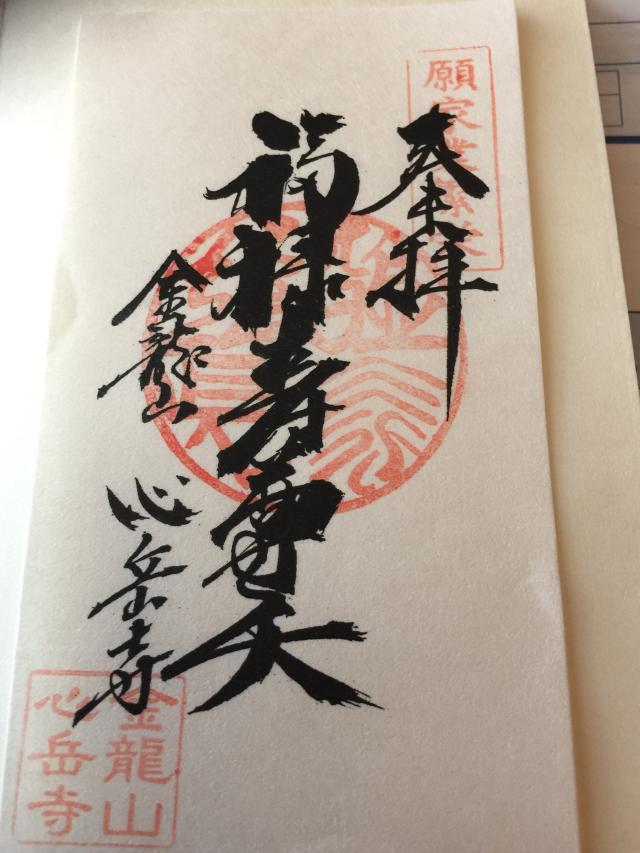 願家業繁
奉拝
福禄寿尊天
金龍山
心岳寺
金龍山
心岳寺